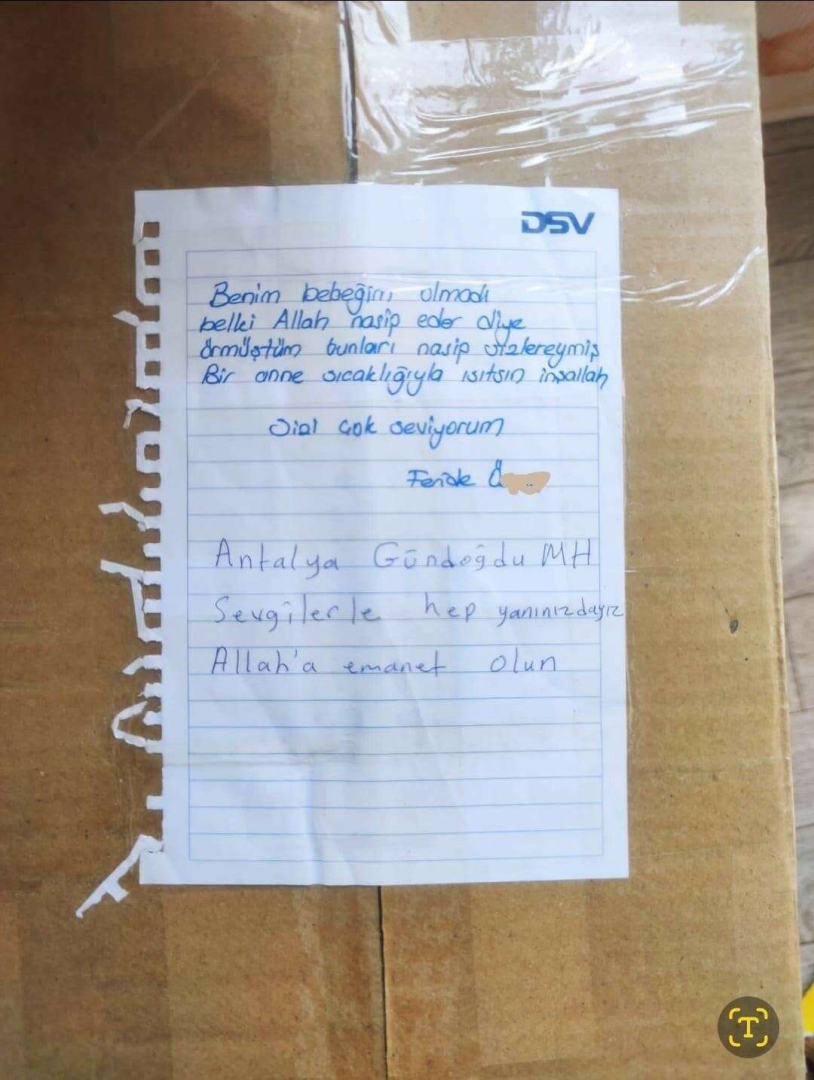 DSV
Benim bebeğim olmadı
belki Allah nasip eder diye
örmüştüm bunları nasip sizlereymiş
Bir anne sıcaklığıyla ısıtsın inşallah
Sizi çok seviyorum
Feride Ö
Antalya Gündoğdu MH
Sevgilerle hep yanınızdayız
Allah'a emanet olun
T